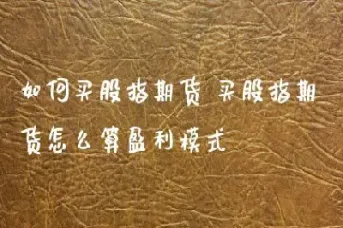 如何买股指期货 买股指期
货怎么算盈利模式